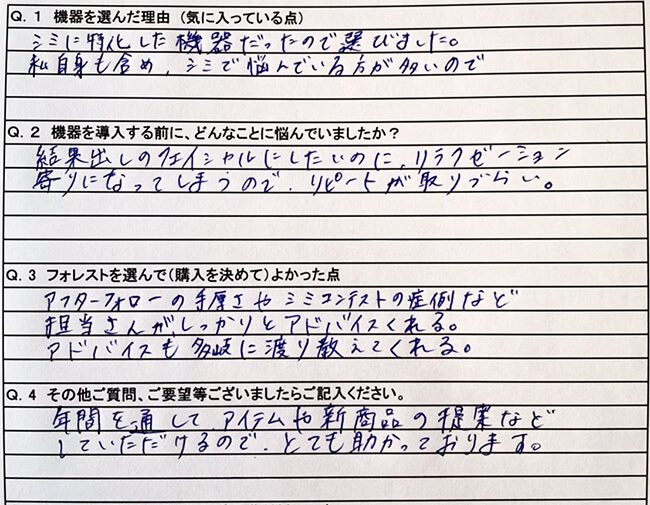 Q. 1 機器を選んだ理由（気に入っている点）
シミに特化した機器だったので選びました。
私自身も含め、シミで悩んでいる方が多いので
Q. 2 機器を導入する前に、どんなことに悩んでいましたか？
結果出しのフェイシャルにしたいのに、リラクゼーション
寄りになってしまうので、リピートが取りづらい。
Q. 3 フォレストを選んで（購入を決めて）よかった点
アフターフォローの手厚さやシミコンテストの症例など
担当さんがしっかりとアドバイスくれる。
アドバイスも多岐に渡り教えてくれる。
Q. 4 その他ご質問、ご要望等ございましたらご記入ください。
年間を通して、アイテムや新商品の提案など
していただけるので、とても助かっております。